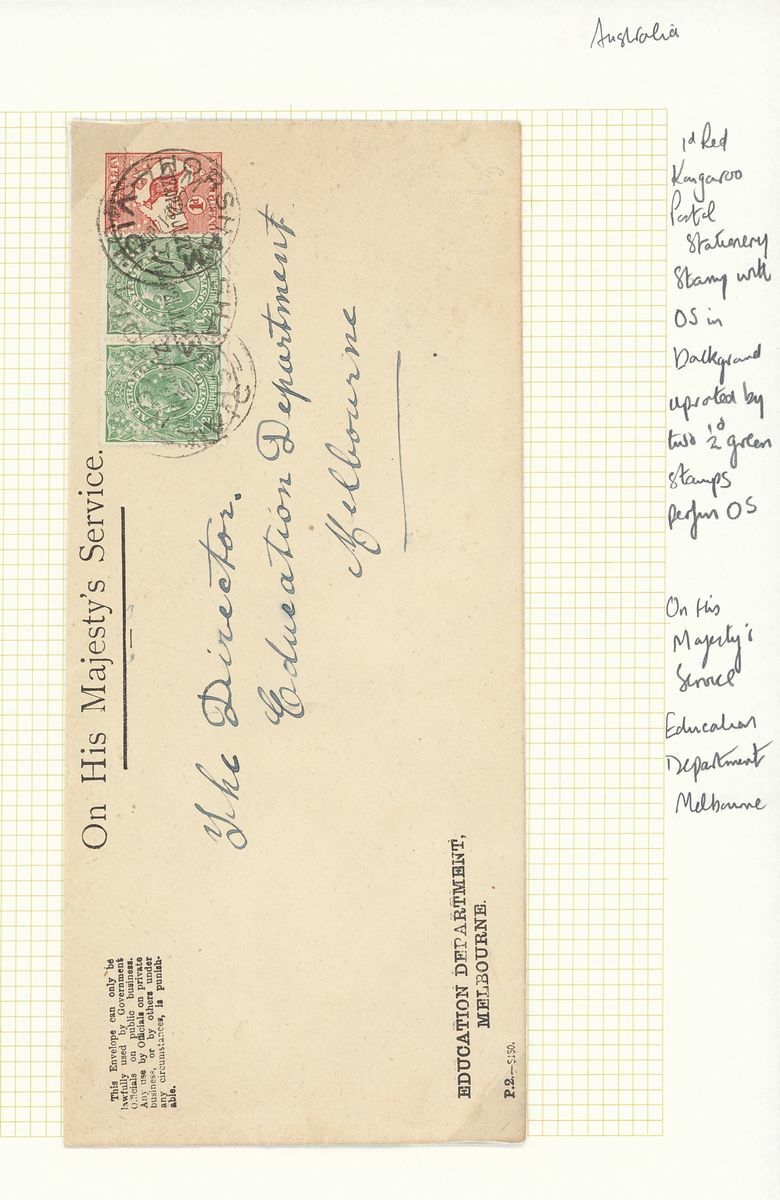 Australia
1d Red
Kangaroo
Postal
Stationery
Stamp with
OS in
background
uprated by
two ½d green
stamps
perfin OS
On His
Majesty's
Service
Education
Department
Melbourne
On His Majesty's Service.
HORSHAM
VIC
The Director.
Education Department
Melbourne
This Envelope can only be
lawfully used by Government
Officials on public business.
Any use by Officials on private
business, or by others under
any circumstances, is punish-
able.
EDUCATION DEPARTMENT,
MELBOURNE.
P.2.—5150.